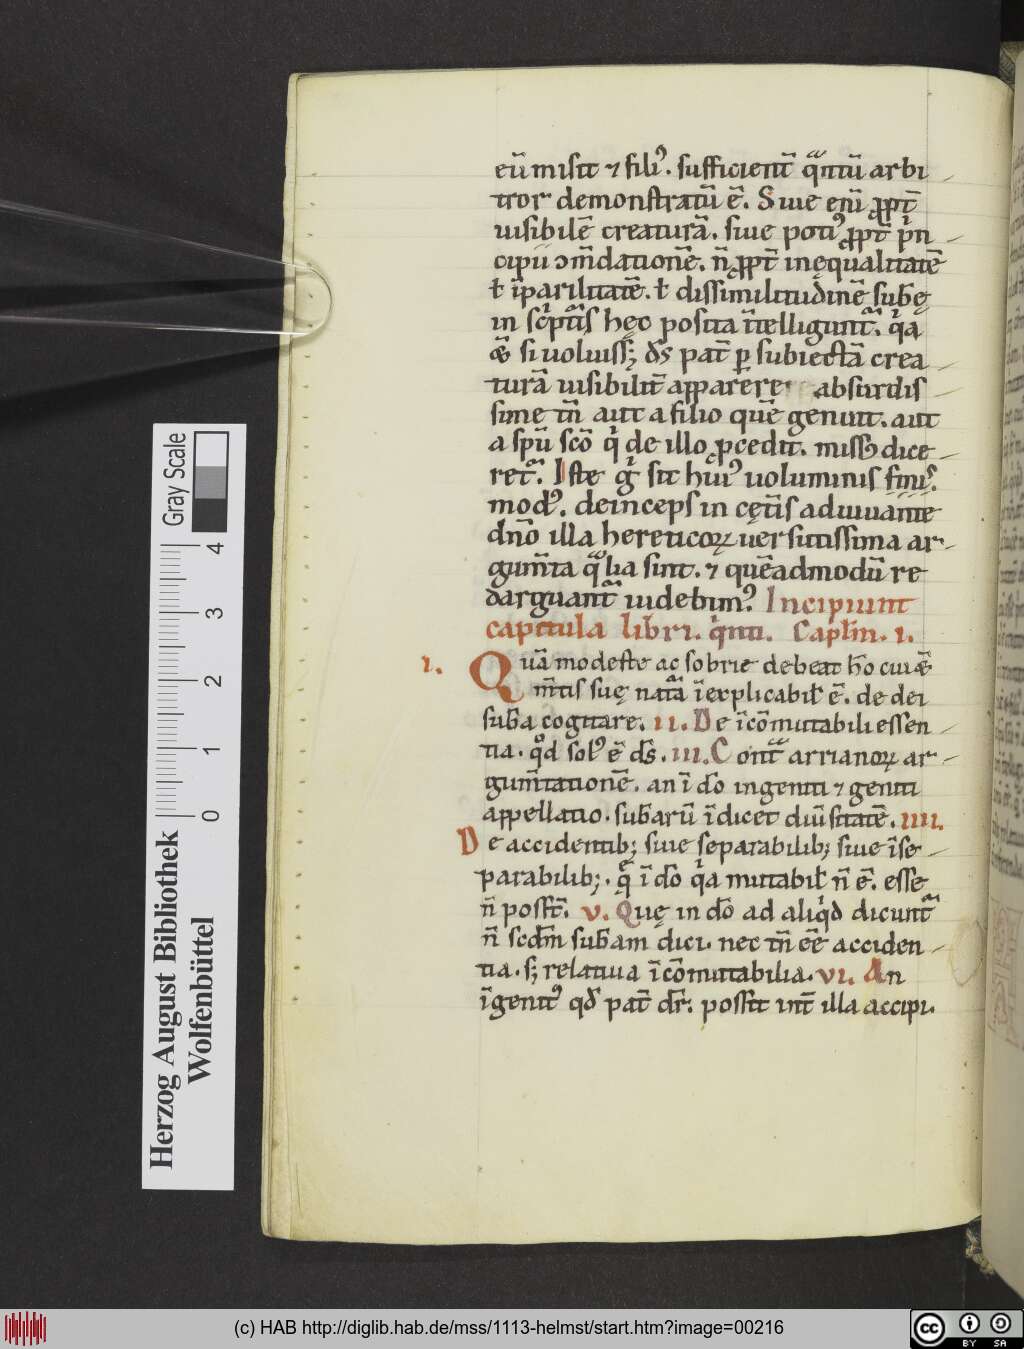 eū misit ⁊ filiꝰ. sufficient̄ qᷓntū arbi
tror demonstratū ē. Siue eni ꝓpt̄
uisibilē creaturā. siue potiꝰ ꝓpt̄ pⁱn
cipii ↄm̄dationē. n̄ ꝓpt̄ inęqualitatē
ł īparilitatē. ł dissimilitudinē subę
in scⁱptᷓis hęc posita ītelliguntᷓ. qⁱa
&̄ si uoluiss; ds̄ pat̄ ꝑ subiectā crea
turā uisibilit̄ apparere. absurdis
sime tn̄ aut a filio quē genuit. aut
a spū scō qⁱ de illo ꝓcedit. missꝰ dice
retᷓ. Iste gⁱ sit huiꝰ uoluminis finiˢ.
modꝰ. deinceps in cęt̄is adiuuante
dn̄o illa hereticoꝝ uersutissima ar
gum̄ta qᷓlia sint. ⁊ quēadmodū re
darguantᷓ uidebimꝰ. Incipiunt
capitula libri. qⁱnti. Capłm. i.
i. Quā modeste ac sobrie debeat hō cui&̄
m̄tis suę natᷓā īexplicabił ē. de dei
sub̄a cogitare. ii. De īcōmutabili essen
tia. qͦd solꝰ ē ds̄. iii. Contᷓ arrianoꝝ ar
gum̄tationē. an ī dō ingeniti ⁊ geniti
appellatio. sub̄arū īdicet diūsitatē. iiii.
De accidentib; siue separabilib; siue īse
parabilib;. q̄ ī dō qⁱa mutabił n̄ ē. esse
n̄ posst̄. v. Quę in dō ad aliqⁱd dicuntᷓ
n̄ scdm̄ sub̄am dici. nec tn̄ eē acciden
tia. s; relatiua īcōmutabilia. vi. An
īgenitꝰ qd̄ pat̄ dr̄. possit int̄ illa accipi.
Herzog August Bibliothek
Wolfenbüttel
Gray Scale
0 1 2 3 4
(c) HAB http://diglib.hab.de/mss/1113-helmst/start.htm?image=00216
cc BY SA